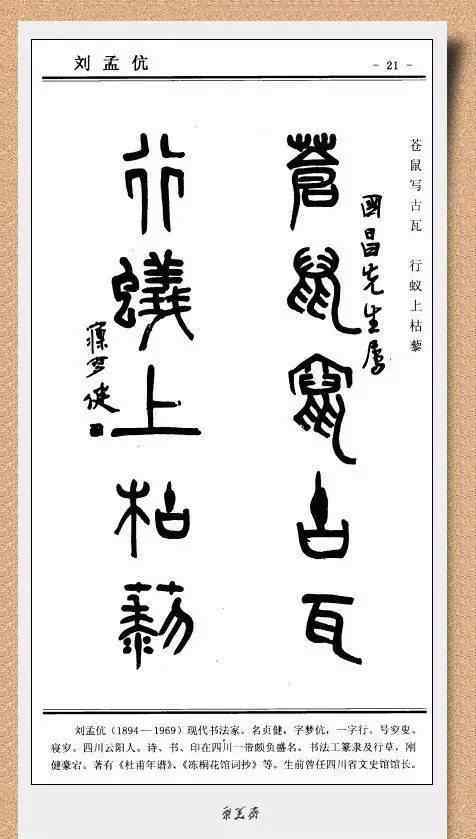 刘孟伉
- 21 -
苍鼠写古瓦 行蚁上枯藜
國昌先生屬
蒼鼠竄古瓦
行蟻上枯藜
健
刘孟伉(1894—1969)现代书法家。名贞健,字梦伉,一字行,号叟、
四川云阳人。诗、书、印在四川一带颇负盛名。书法工篆隶及行草,刚
健豪宕。著有《杜甫年谱》、《冻桐花馆词抄》等。生前曾任四川省文史馆馆长。